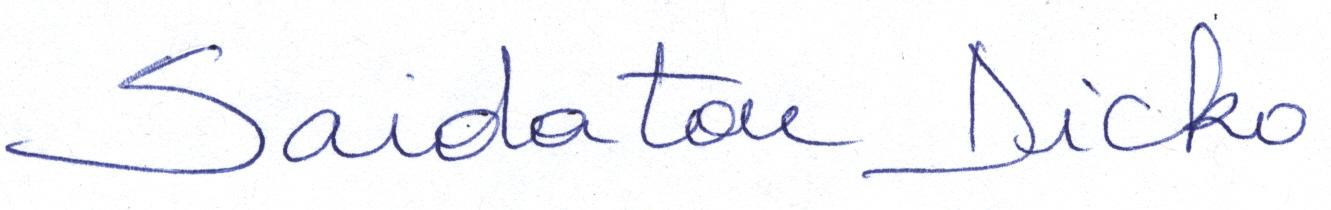 Saidatou Dicko